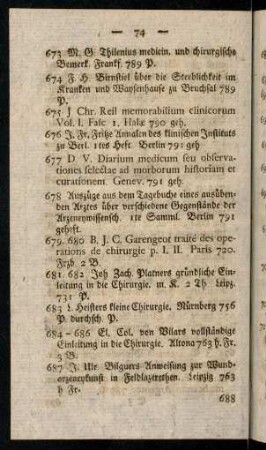 — 74 —
673 M. G. Thilenius medicin. und chirurgische
Bemerk. Frankf. 789 P.
674 F. H. Birnstiel über die Sterblichkeit im
Kranken und Waysenhause zu Bruchsal 789
P.
675 J Chr. Reil memorabilium clinicorum
Vol. I. Fasc 1. Halæ 790 geh.
676 J. Fr. Fritze Annalen des klinischen Instituts
zu Berl. 1tes Heft. Berlin 791 geh
677 D V. Diarium medicum seu observa-
tiones selectae ad morborum historiam et
curationem. Genev. 791 geh.
678 Auszüge aus dem Tagebuche eines ausüben-
den Arztes über verschiedene Gegenstände der
Arzeneywissensch. 1te Samml. Berlin 791
geheft.
679. 680 B. J. C. Garengeot traité des ope-
rations de chirurgie p. I. II. Paris 720.
Frzb. 2 B.
681. 682 Joh Zach. Platners gründliche Ein-
leitung in die Chirurgie. m. K. 2 Th Leipz.
731 P.
683 L. Heisters kleine Chirurgie. Nürnberg 756
P. durchsch. P.
684 – 686 El. Col. von Vilars vollständige
Einleitung in die Chirurgie. Altona 763 h. Fr.
3 B.
687 J. Ulr. Bilguers Anweisung zur Wund-
arzeneykunst in Feldlazarethen. Leipzig 763
h Fr.
688